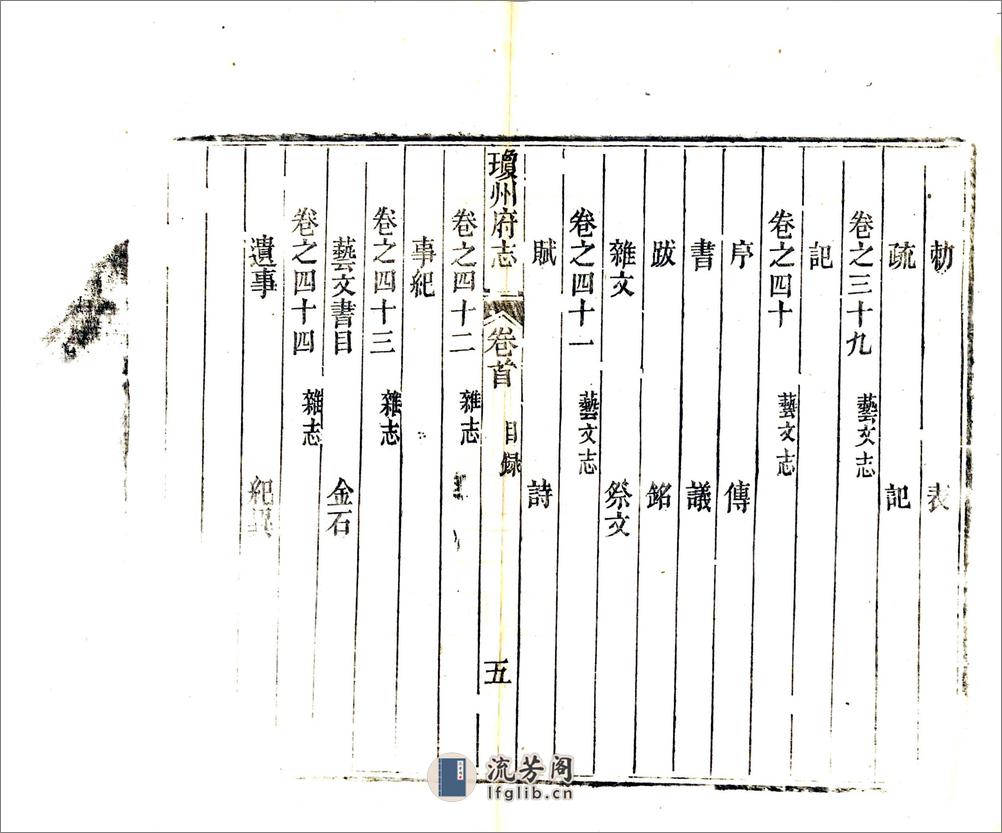 勅 表
疏 記
卷之三十九 藝文志
記
卷之四十 藝文志
序 傳
書 議
跋 銘
雜文 祭文
卷之四十一 藝文志
賦 詩
瓊州府志 卷首 目録 五
卷之四十二 雜志
事紀
卷之四十三 雜志
藝文書目 金石
卷之四十四 雜志
遺事 紀異
流芳阁
lfglib.cn